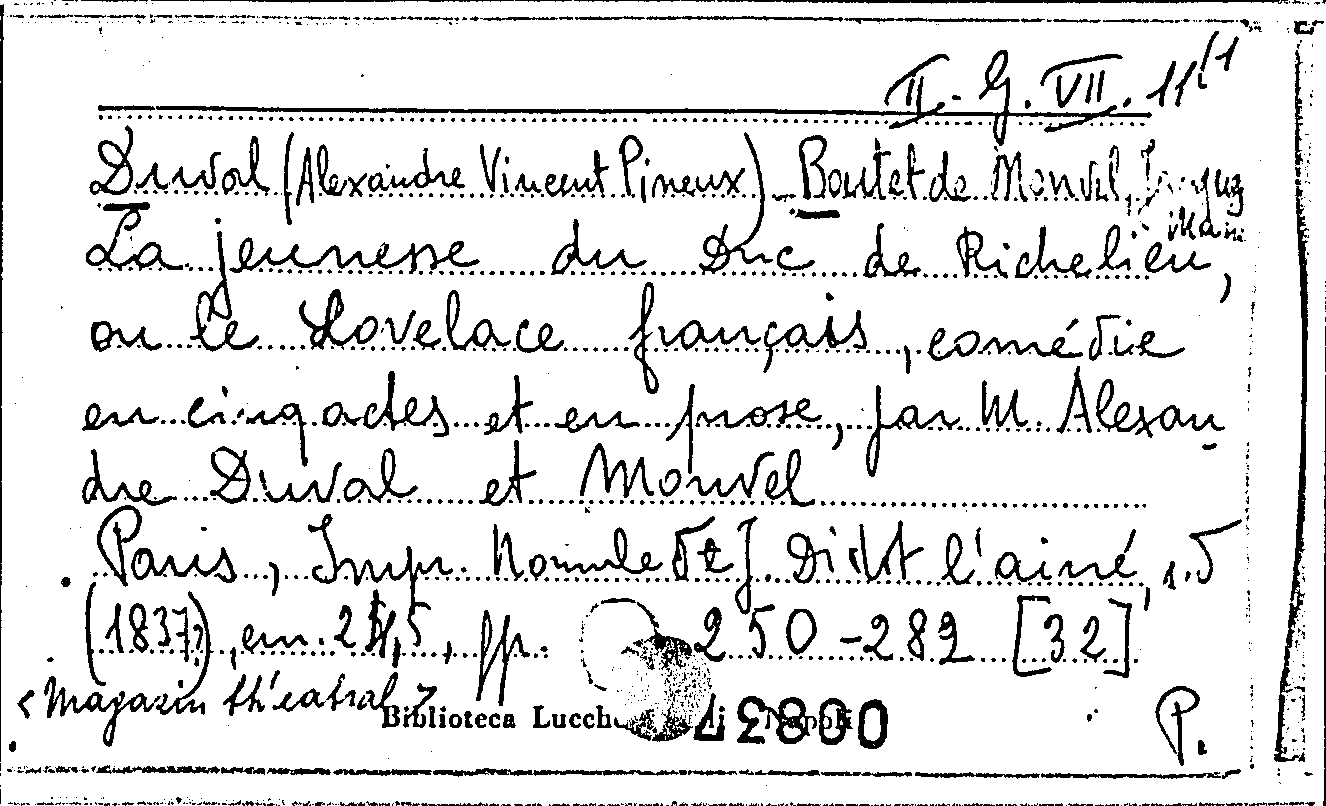 II. G. VII. 11(1
Duval (Alexandre Vincent Pineux) - Boutet de Monvel, Jacques
Marie
La jeunesse du Duc de Richelieu,
ou le Lovelace français, comédie
en cinq actes et en prose, par M. Alexan
dre Duval et Monvel
Paris, Impr. Normale de J. Didot l'ainé, s.d
(1837?), cm. 25,5, pp. 250-289 [32]
<Magasin théatral>
Biblioteca Lucchesi Palli - Napoli
P.